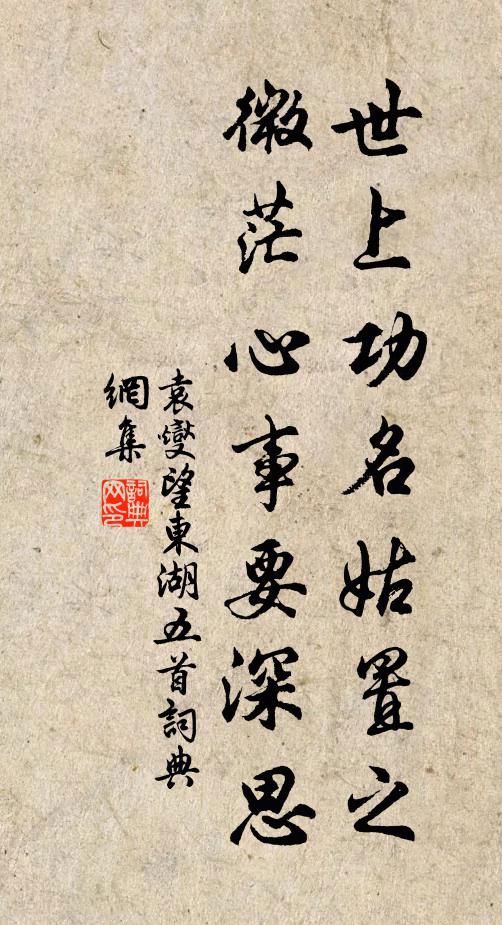 世上功名姑置之
微茫心事要深思
袁燮望東湖五首詞典
網集
詞典
网印